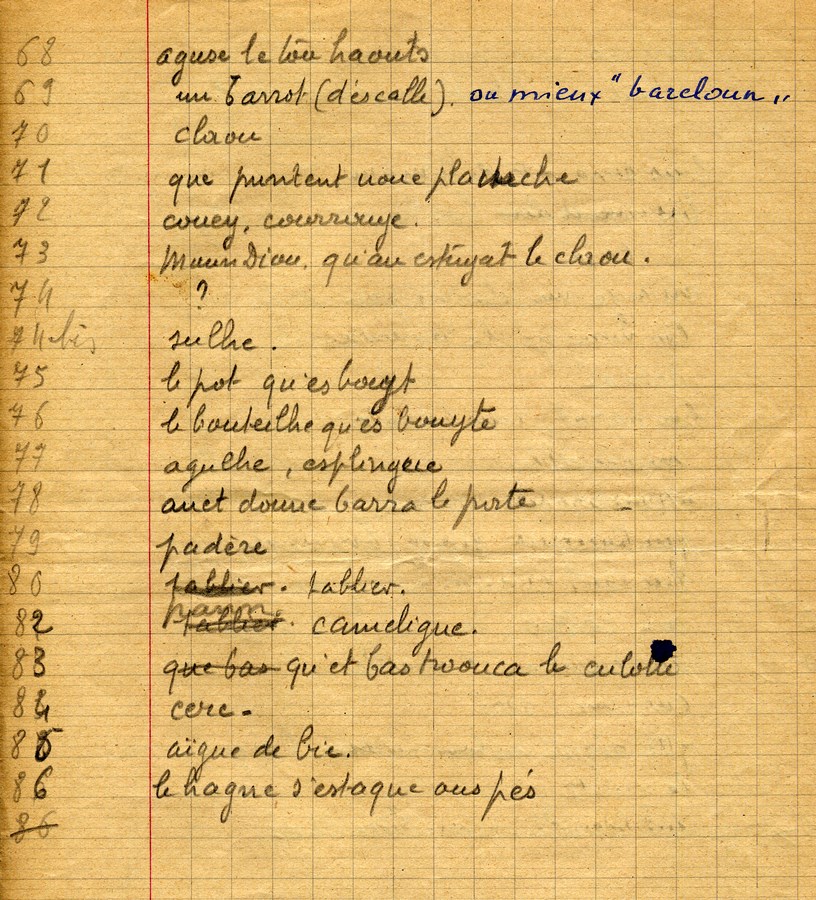 68 aguse le tou haouts
69 un barrot (d'escalle). ou mieux "barcloun"
70 claou
71 que puntent noue planche
72 couey, courrouye.
73 Moun Diou. qu'au estuyat le claou.
74 ?
74 bis sulhe.
75 le pot qu'es bouyt
76 le bouteilhe qu'es bouyte
77 agulhe, esplingue
78 anet doune barra le porte
79 padère
80 tablier. tablier.
82 tablier. cameligue.
83 que bas qu'et bas trouca le culotte
84 cere.
85 aïgue de bie.
86 le hagne s'estaque aus pés
86